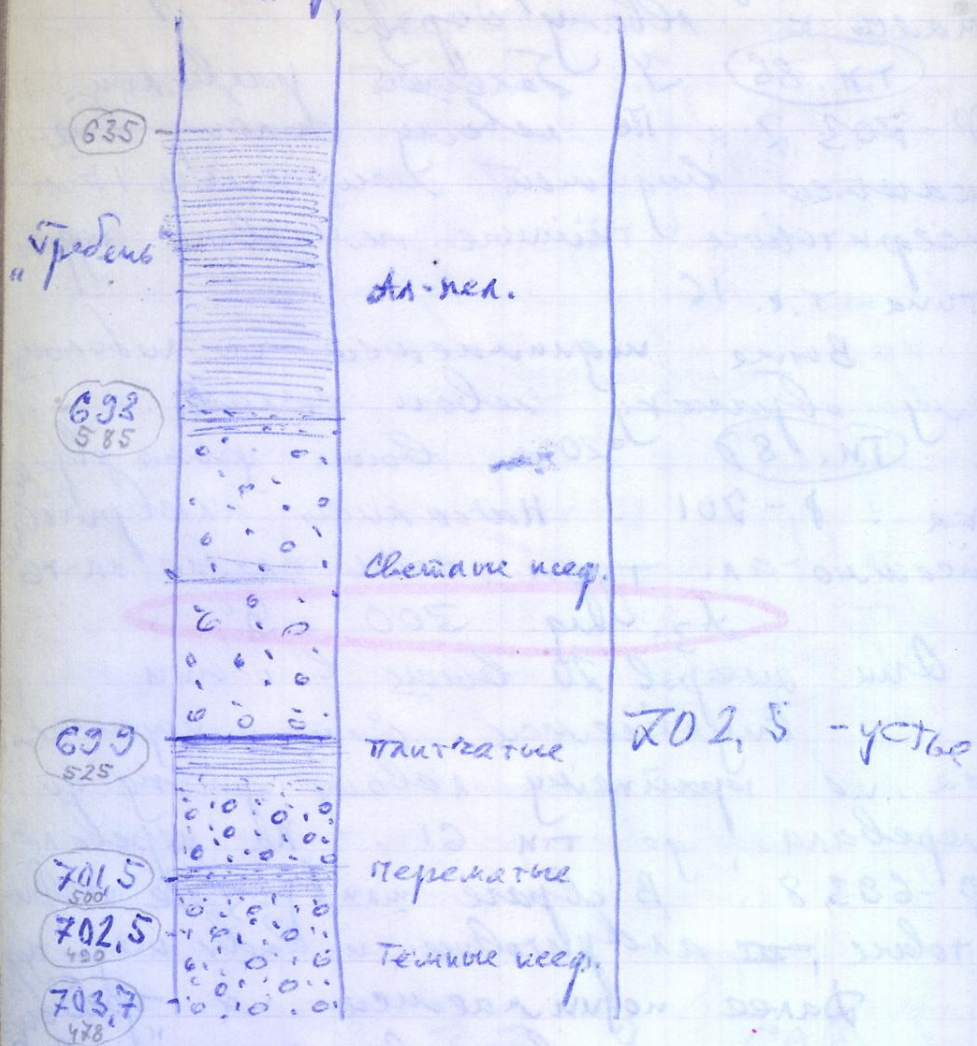 635
„Гребень“
Ал-пел.
693
585
Светлые псеф.
699
525
плитчатые
702,5 - устье
701,5
500
Перемятые
702,5
490
Темные псеф.
703,7
478